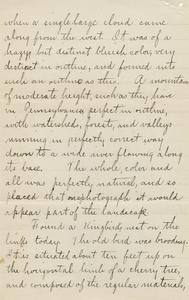 when a single large cloud came
along from the west. It was of a
hazy but distinct bluish color, very
distinct in outline, and formed into
such an outline as this! A mountain
of moderate height, such as they have
in Pennsylvania perfect in outline,
with watersheds, forests, and valleys
running in perfectly correct way
down to a wide river flowing along
its base. The whole, color and
all was perfectly natural, and so
placed that a photograph it would
appear part of the landscape.
Found a Kingbird's nest on the
links today. The old bird was brooding.
It is situated about ten feet up on
the horizontal limb of a cherry tree,
and composed of the regular materials,